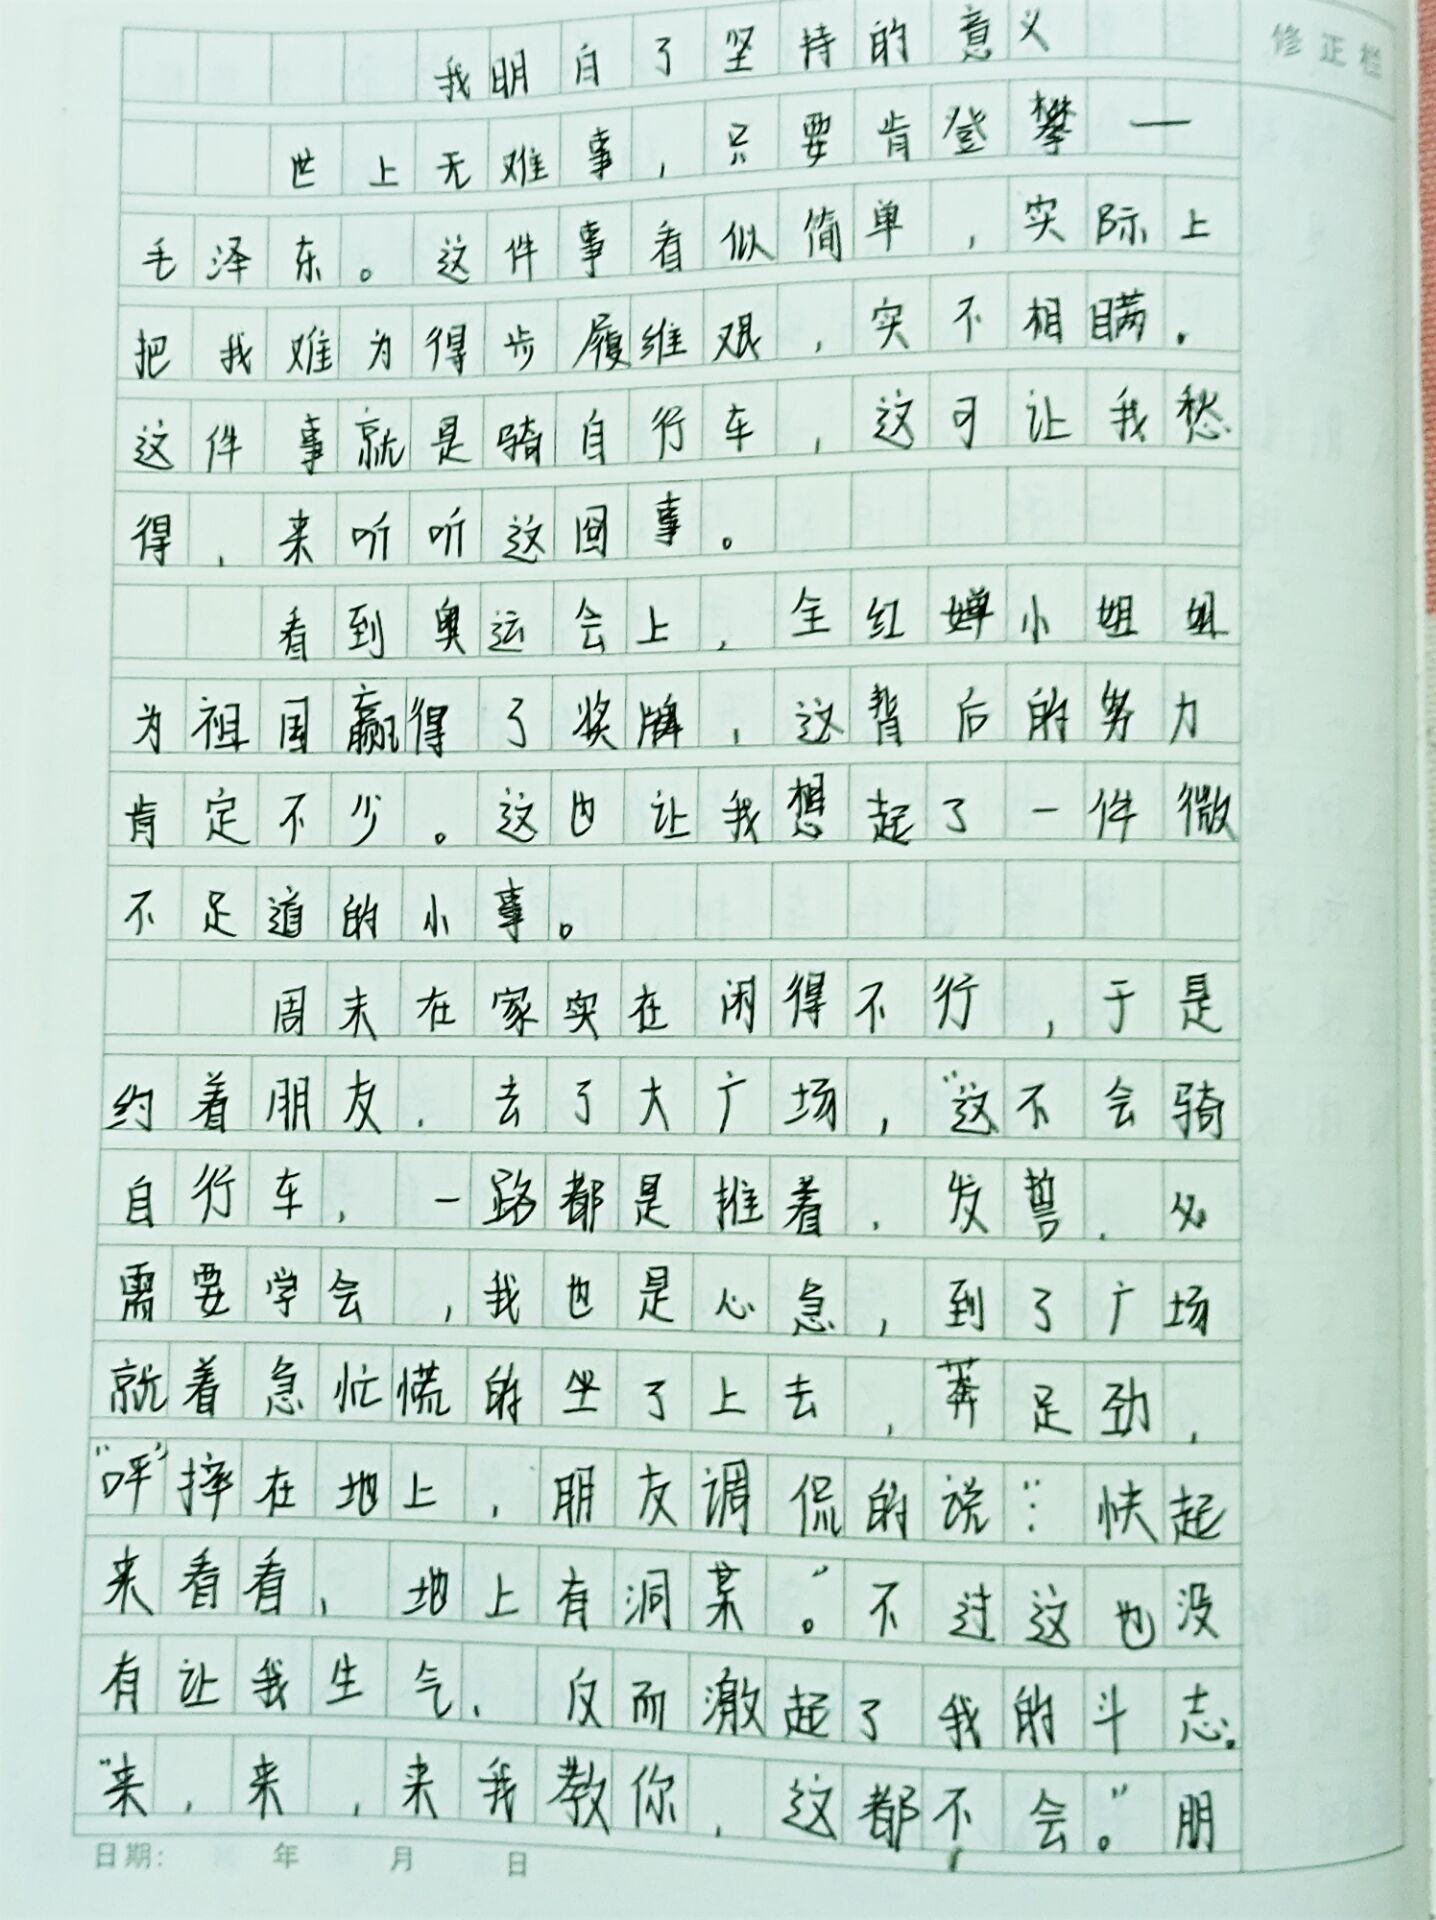 我明白了坚持的意义
修正栏
世上无难事，只要肯登攀—
毛泽东。这件事看似简单，实际上
把我难为得步履维艰，实不相瞒.
这件事就是骑自行车，这可让我愁
得，来听听这囬事。
看到奥运会上，全红婵小姐姐
为祖国赢得了奖牌，这背后的努力
肯定不少。这也让我想起了一件微
不足道的小事。
周末在家实在闲得不行，于是
约着朋友，去了大广场，“这不会骑
自行车，一路都是推着，发誓，必
需要学会，我也是心急，到了广场
就着急忙慌的坐了上去，莽足劲，
“呯”摔在地上，朋友调侃的说：“快起
来看看，地上有洞某。”不过这也没
有让我生气，反而激起了我的斗志。
“来，来，来我教你，这都不会。”朋
日期： 年 月 日